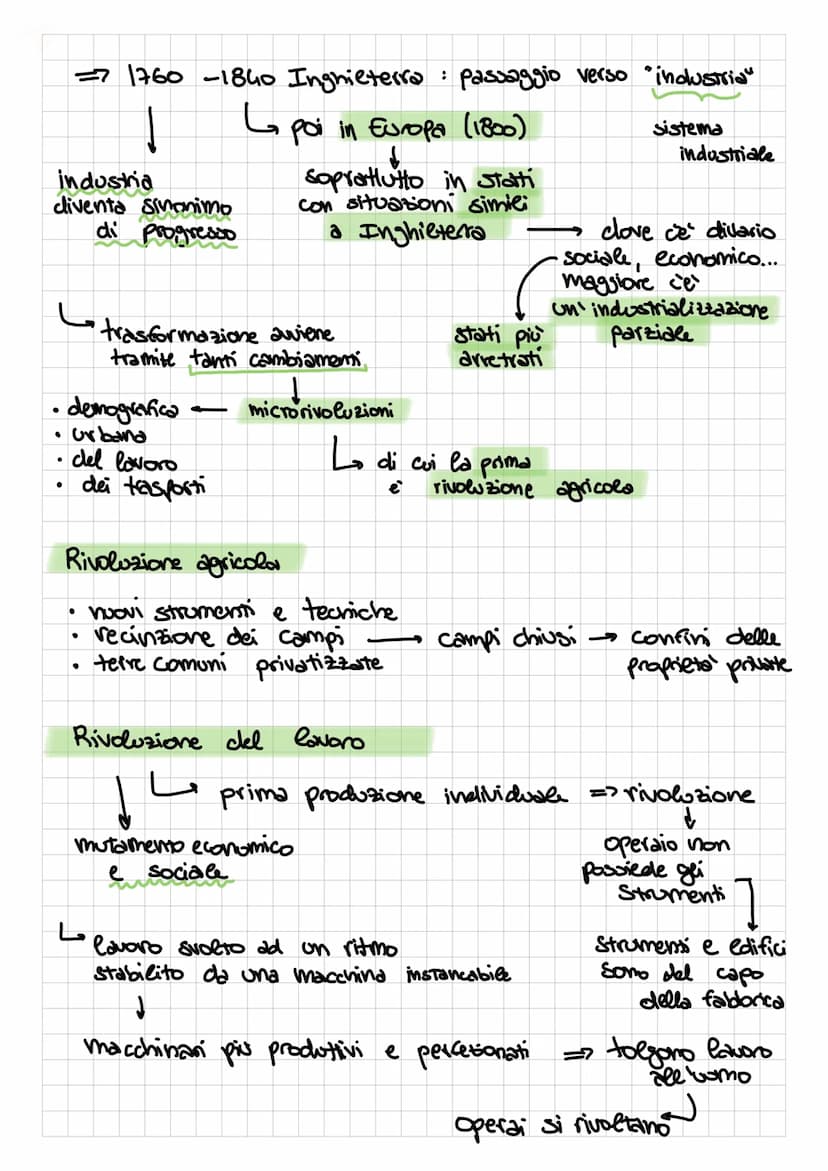 ⇒ 1760 - 1840 Inghieterra : passaggio verso "industria"
↳ poi in Europa (1800)
sistema
industriale
industria
diventa sinonimo
di progresso
soprattutto in stati
con situazioni simili
a Inghilterra → dove c'è divario
sociale, economico...
maggiore c'è
un'industrializzazione
parziale
stati più
arretrati
↳ trasformazione avviene
tramite tanti cambiamenti
microrivoluzioni
• demografica
• urbana
• del lavoro
• dei trasporti
↳ di cui la prima
è rivoluzione agricola
Rivoluzione agricola
• nuovi strumenti e tecniche
• recinzione dei campi → campi chiusi → confini delle
proprietà private
• terre comuni privatizzate
Rivoluzione del lavoro
↳ prima produzione individuale ⇒ rivoluzione
mutamento economico
e sociale
operaio non
possiede gli
strumenti
↳ lavoro svolto ad un ritmo
stabilito da una macchina instancabile
strumenti e edifici
sono del capo
della fabbrica
macchinari più produttivi e perfezionati ⇒ tolgono lavoro
all'uomo
operai si rivoltano